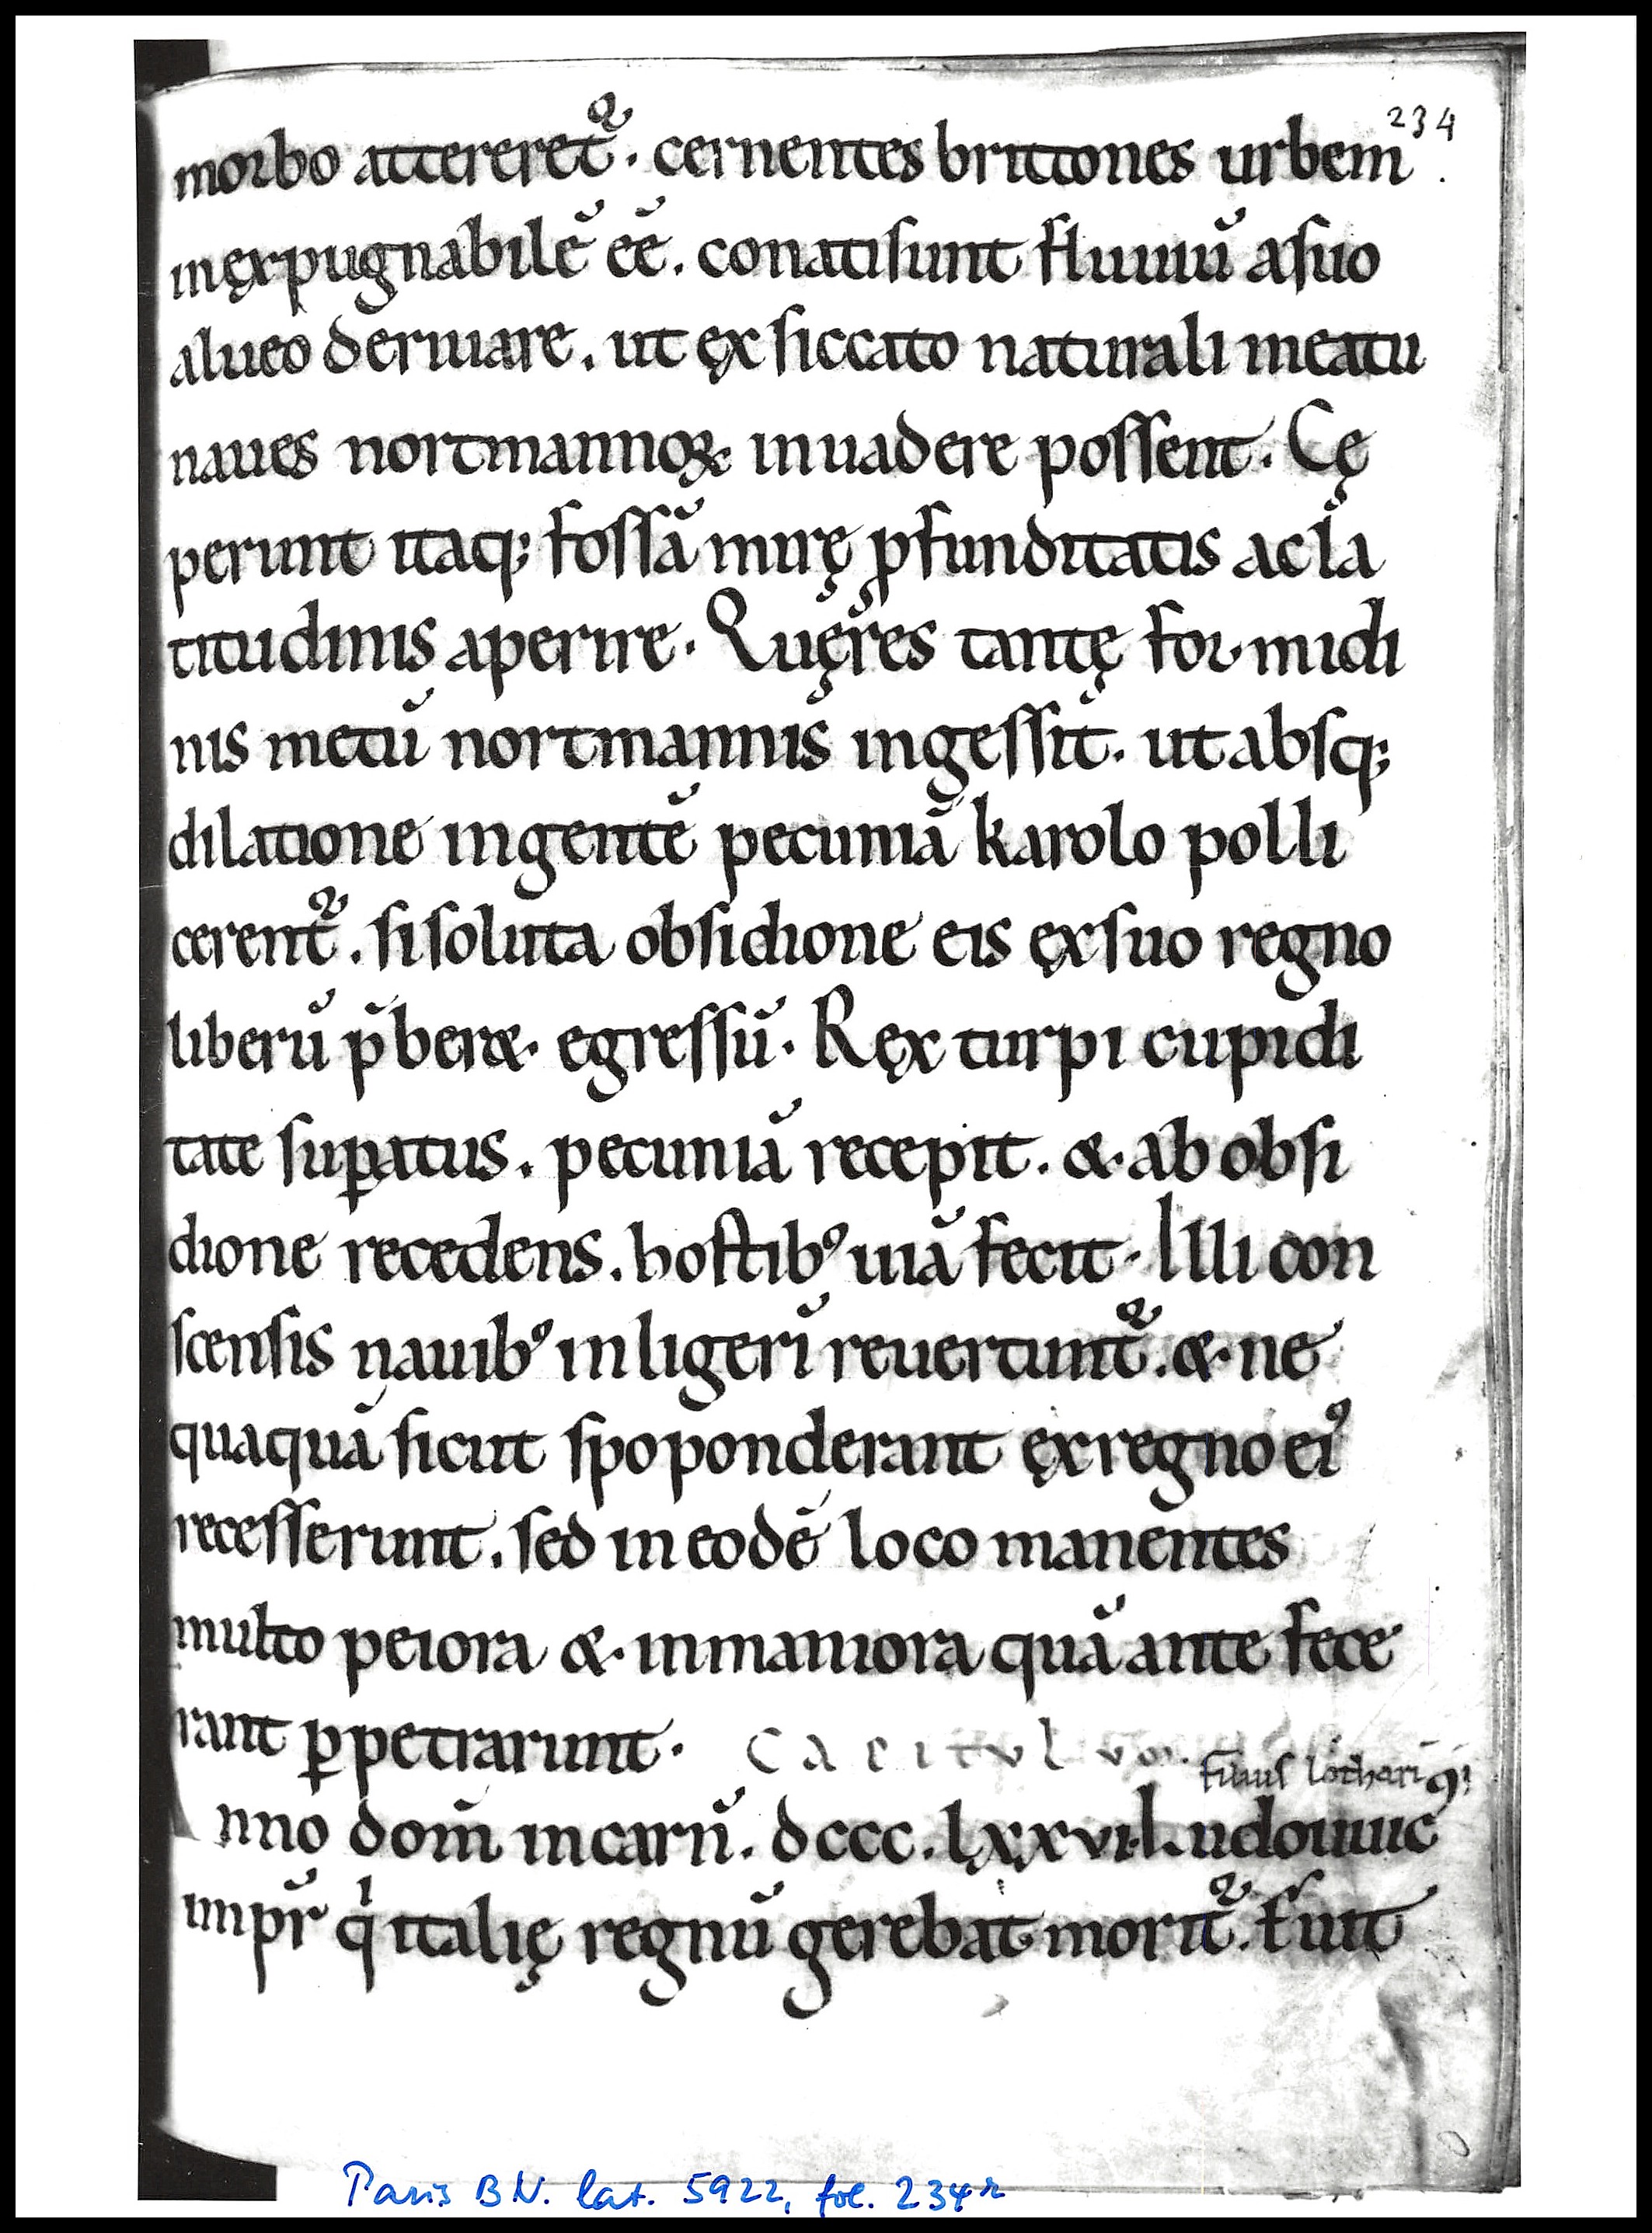 234
morbo attereret᷑. cernentes brittones urbem.
inęxpugnabilē eē. conatisunt fluuiū asuo
alueo deriuare. ut ęx siccato naturali meatu
naues nortmannoꝝ inuadere possent. Cę
perunt itaq; fossā mirę ꝓfunditatis ac la
titudinis aperire. Quęres tantę formidi
nis metū nortmannis ingessit. ut absq;
dilatione ingentē pecuniā karolo polli
cerent᷑. si soluta obsidione eis ęx suo regno
liberū p̄ber& egressū. Ręx turpi cupidi
tate suꝑatus. pecuniā recepit. & ab obsi
dione recedens. hostibꝰ uiā fecit. Illi con
scensis nauibꝰ in ligerī reuertunt᷑. & ne
quaquā sicut spoponderant ęx regno eiꝰ
recesserunt. sed in eodē loco manentes
multo peiora & inmaniora quā ante fece
rant ꝑpetrarunt. Capitulum.
filius lotharii
nno dom̄ incarn̄. dccc. lxxvi. hludouuicꝰ
impr̄ qͥ italię regnū gerebat morit᷑. fuit
Paris BN. lat. 5922, fol. 234r